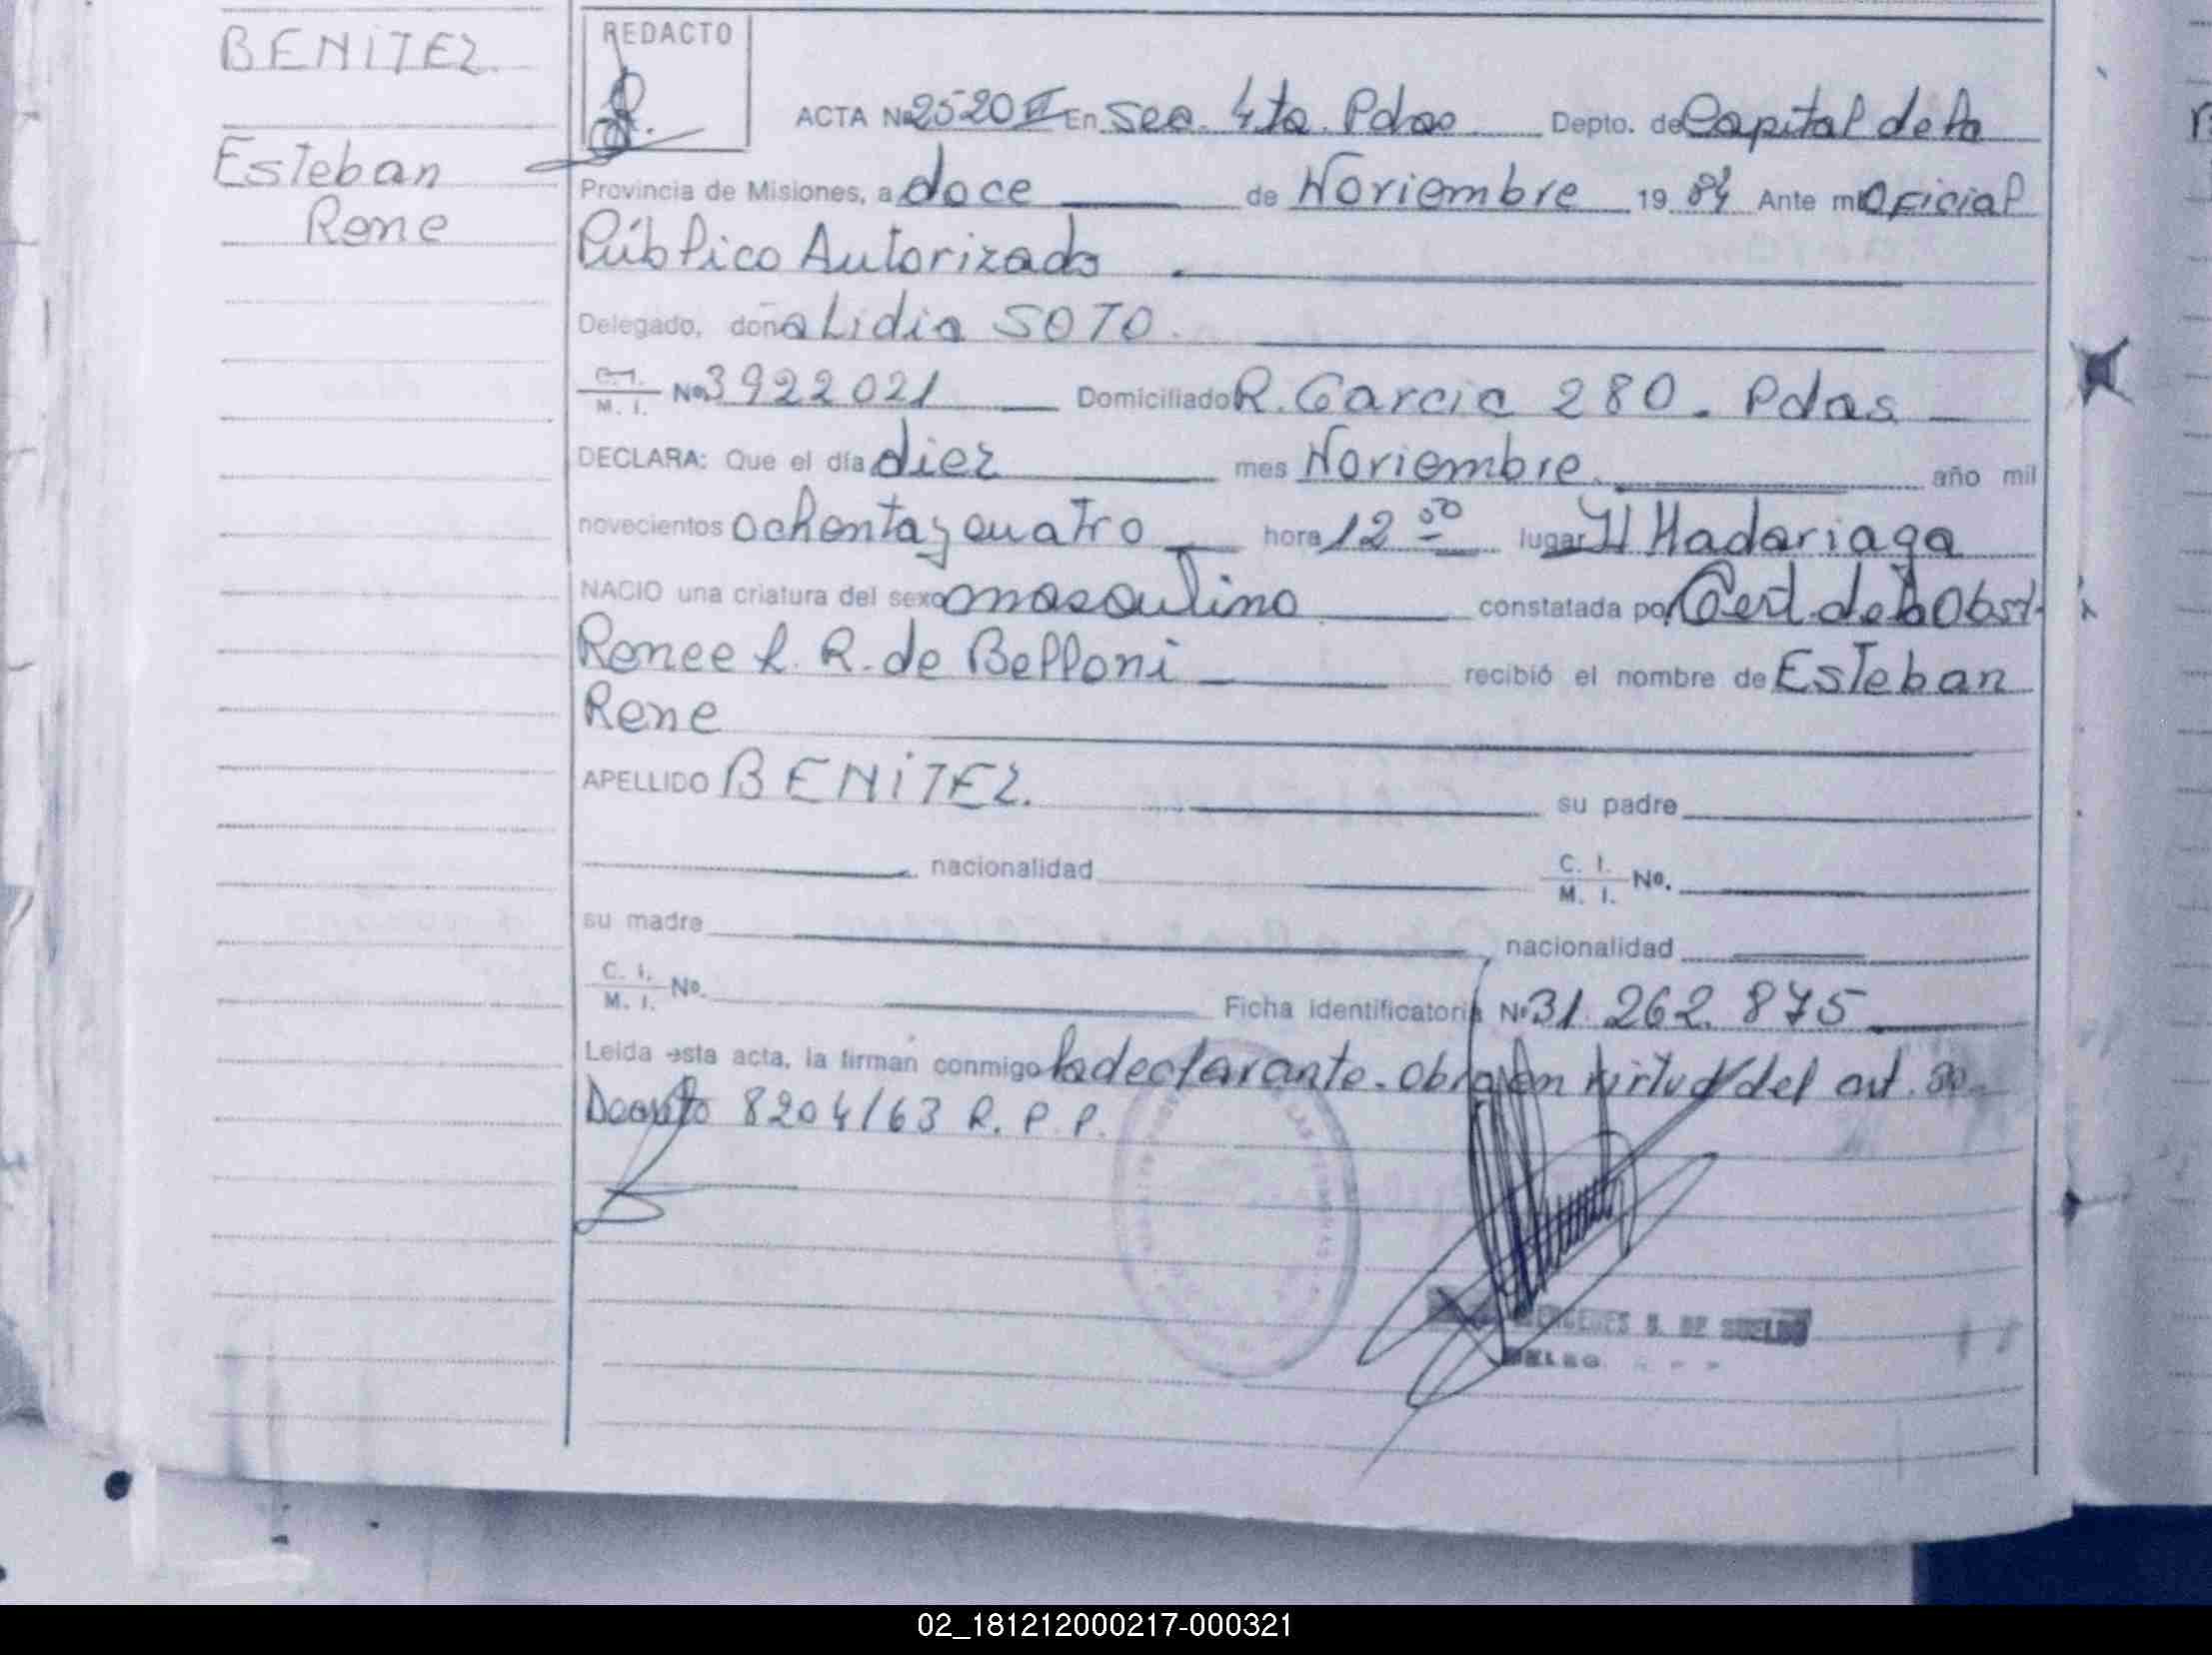 BENITEZ.
Esteban
Rene
REDACTO
ACTA Nº 2520 II En Sec. 4ta. Pdas Depto. de Capital de la
Provincia de Misiones, a doce de Noviembre 1984 Ante mi Oficial
Público Autorizado
Delegado, doña Lidia SOTO.
C.I. M. I. Nº 3922021 Domiciliado R. Garcia 280. Pdas
DECLARA: Que el día diez mes Noviembre. año mil
novecientos ochenta y cuatro hora 12 00 lugar H Madariaga
NACIO una criatura del sexo masculino constatada por Cert. de la Obst.
Renee L. R. de Belloni recibió el nombre de Esteban
Rene
APELLIDO BENITEZ. su padre
nacionalidad C. I. M. I. Nº.
su madre nacionalidad
C. I. M. I. Nº. Ficha identificatoria Nº 31.262.875
Leida esta acta, la firman conmigo la declarante. obra en virtud del art. 30.
Decreto 8204/63 R. P. P.
S. DE SUELDO
02_181212000217-000321